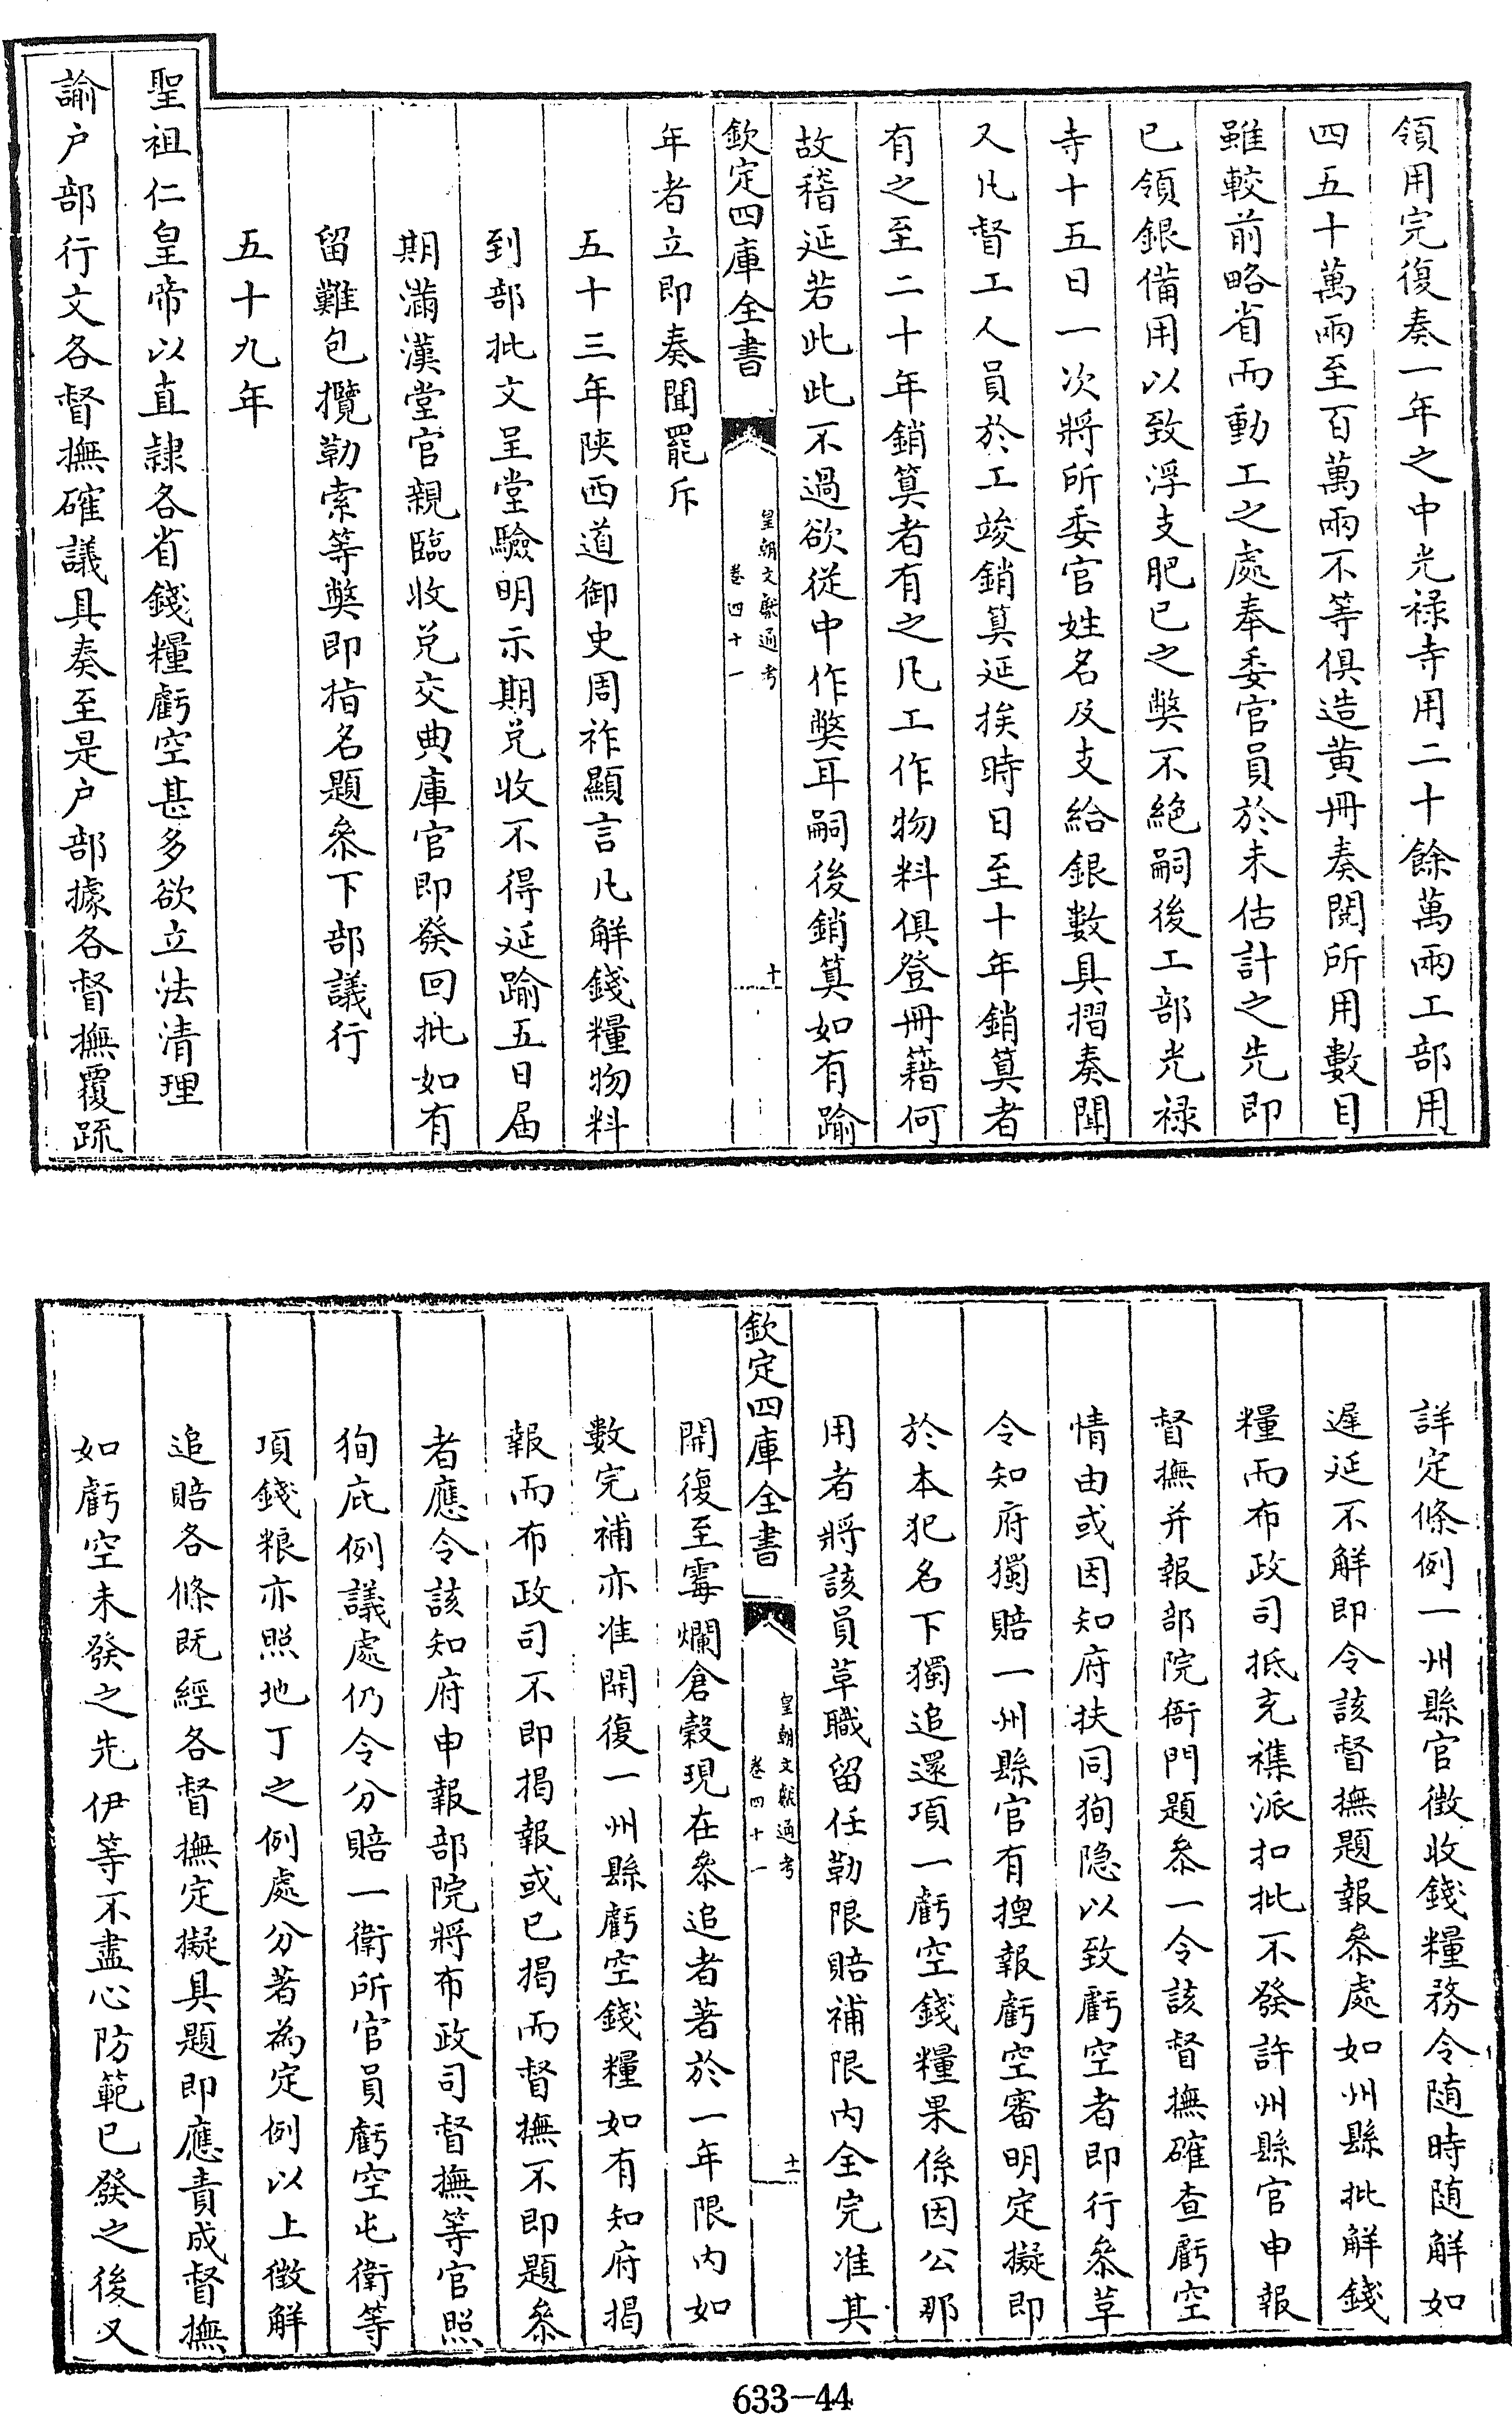 領用完復奏一年之中光禄寺用二十餘萬兩工部用
四五十萬兩至百萬兩不等俱造黄冊奏閱所用數目
雖較前略省而動工之處奉委官員於未估計之先即
已領銀備用以致浮支肥已之弊不絶嗣後工部光禄
寺十五日一次將所委官姓名及支給銀數具摺奏聞
又凡督工人員於工竣銷算延挨時日至十年銷算者
有之至二十年銷算者有之凡工作物料俱登冊籍何
故稽延若此此不過欲從中作弊耳嗣後銷算如有踰
欽定四庫全書
皇朝文獻通考
卷四十一
十
年者立即奏聞罷斥
五十三年陝西道御史周祚顯言凡解錢糧物料
到部批文呈堂驗明示期兑收不得延踰五日届
期滿漢堂官親臨收兑交典庫官即發回批如有
留難包攬勒索等弊即指名題叅下部議行
五十九年
聖祖仁皇帝以直隷各省錢糧虧空甚多欲立法清理
諭户部行文各督撫確議具奏至是户部據各督撫覆疏
詳定條例一州縣官徵收錢糧務令随時随解如
遲延不解即令該督撫題報叅處如州縣批解錢
糧而布政司抵充襍派扣批不發許州縣官申報
督撫并報部院衙門題叅一令該督撫確查虧空
情由或因知府扶同狥隐以致虧空者即行叅革
令知府獨賠一州縣官有揑報虧空審明定擬即
於本犯名下獨追還項一虧空錢糧果係因公那
用者將該員革職留任勒限賠補限内全完准其
欽定四庫全書
皇朝文獻通考
卷四十一
十一
開復至霉爛倉穀現在叅追者著於一年限内如
數完補亦准開復一州縣虧空錢糧如有知府揭
報而布政司不即揭報或已揭而督撫不即題叅
者應令該知府申報部院將布政司督撫等官照
狥庇例議處仍令分賠一衛所官員虧空屯衛等
項錢粮亦照地丁之例處分著為定例以上徵解
追賠各條既經各督撫定擬具題即應責成督撫
如虧空未發之先伊等不盡心防範已發之後又
633-44